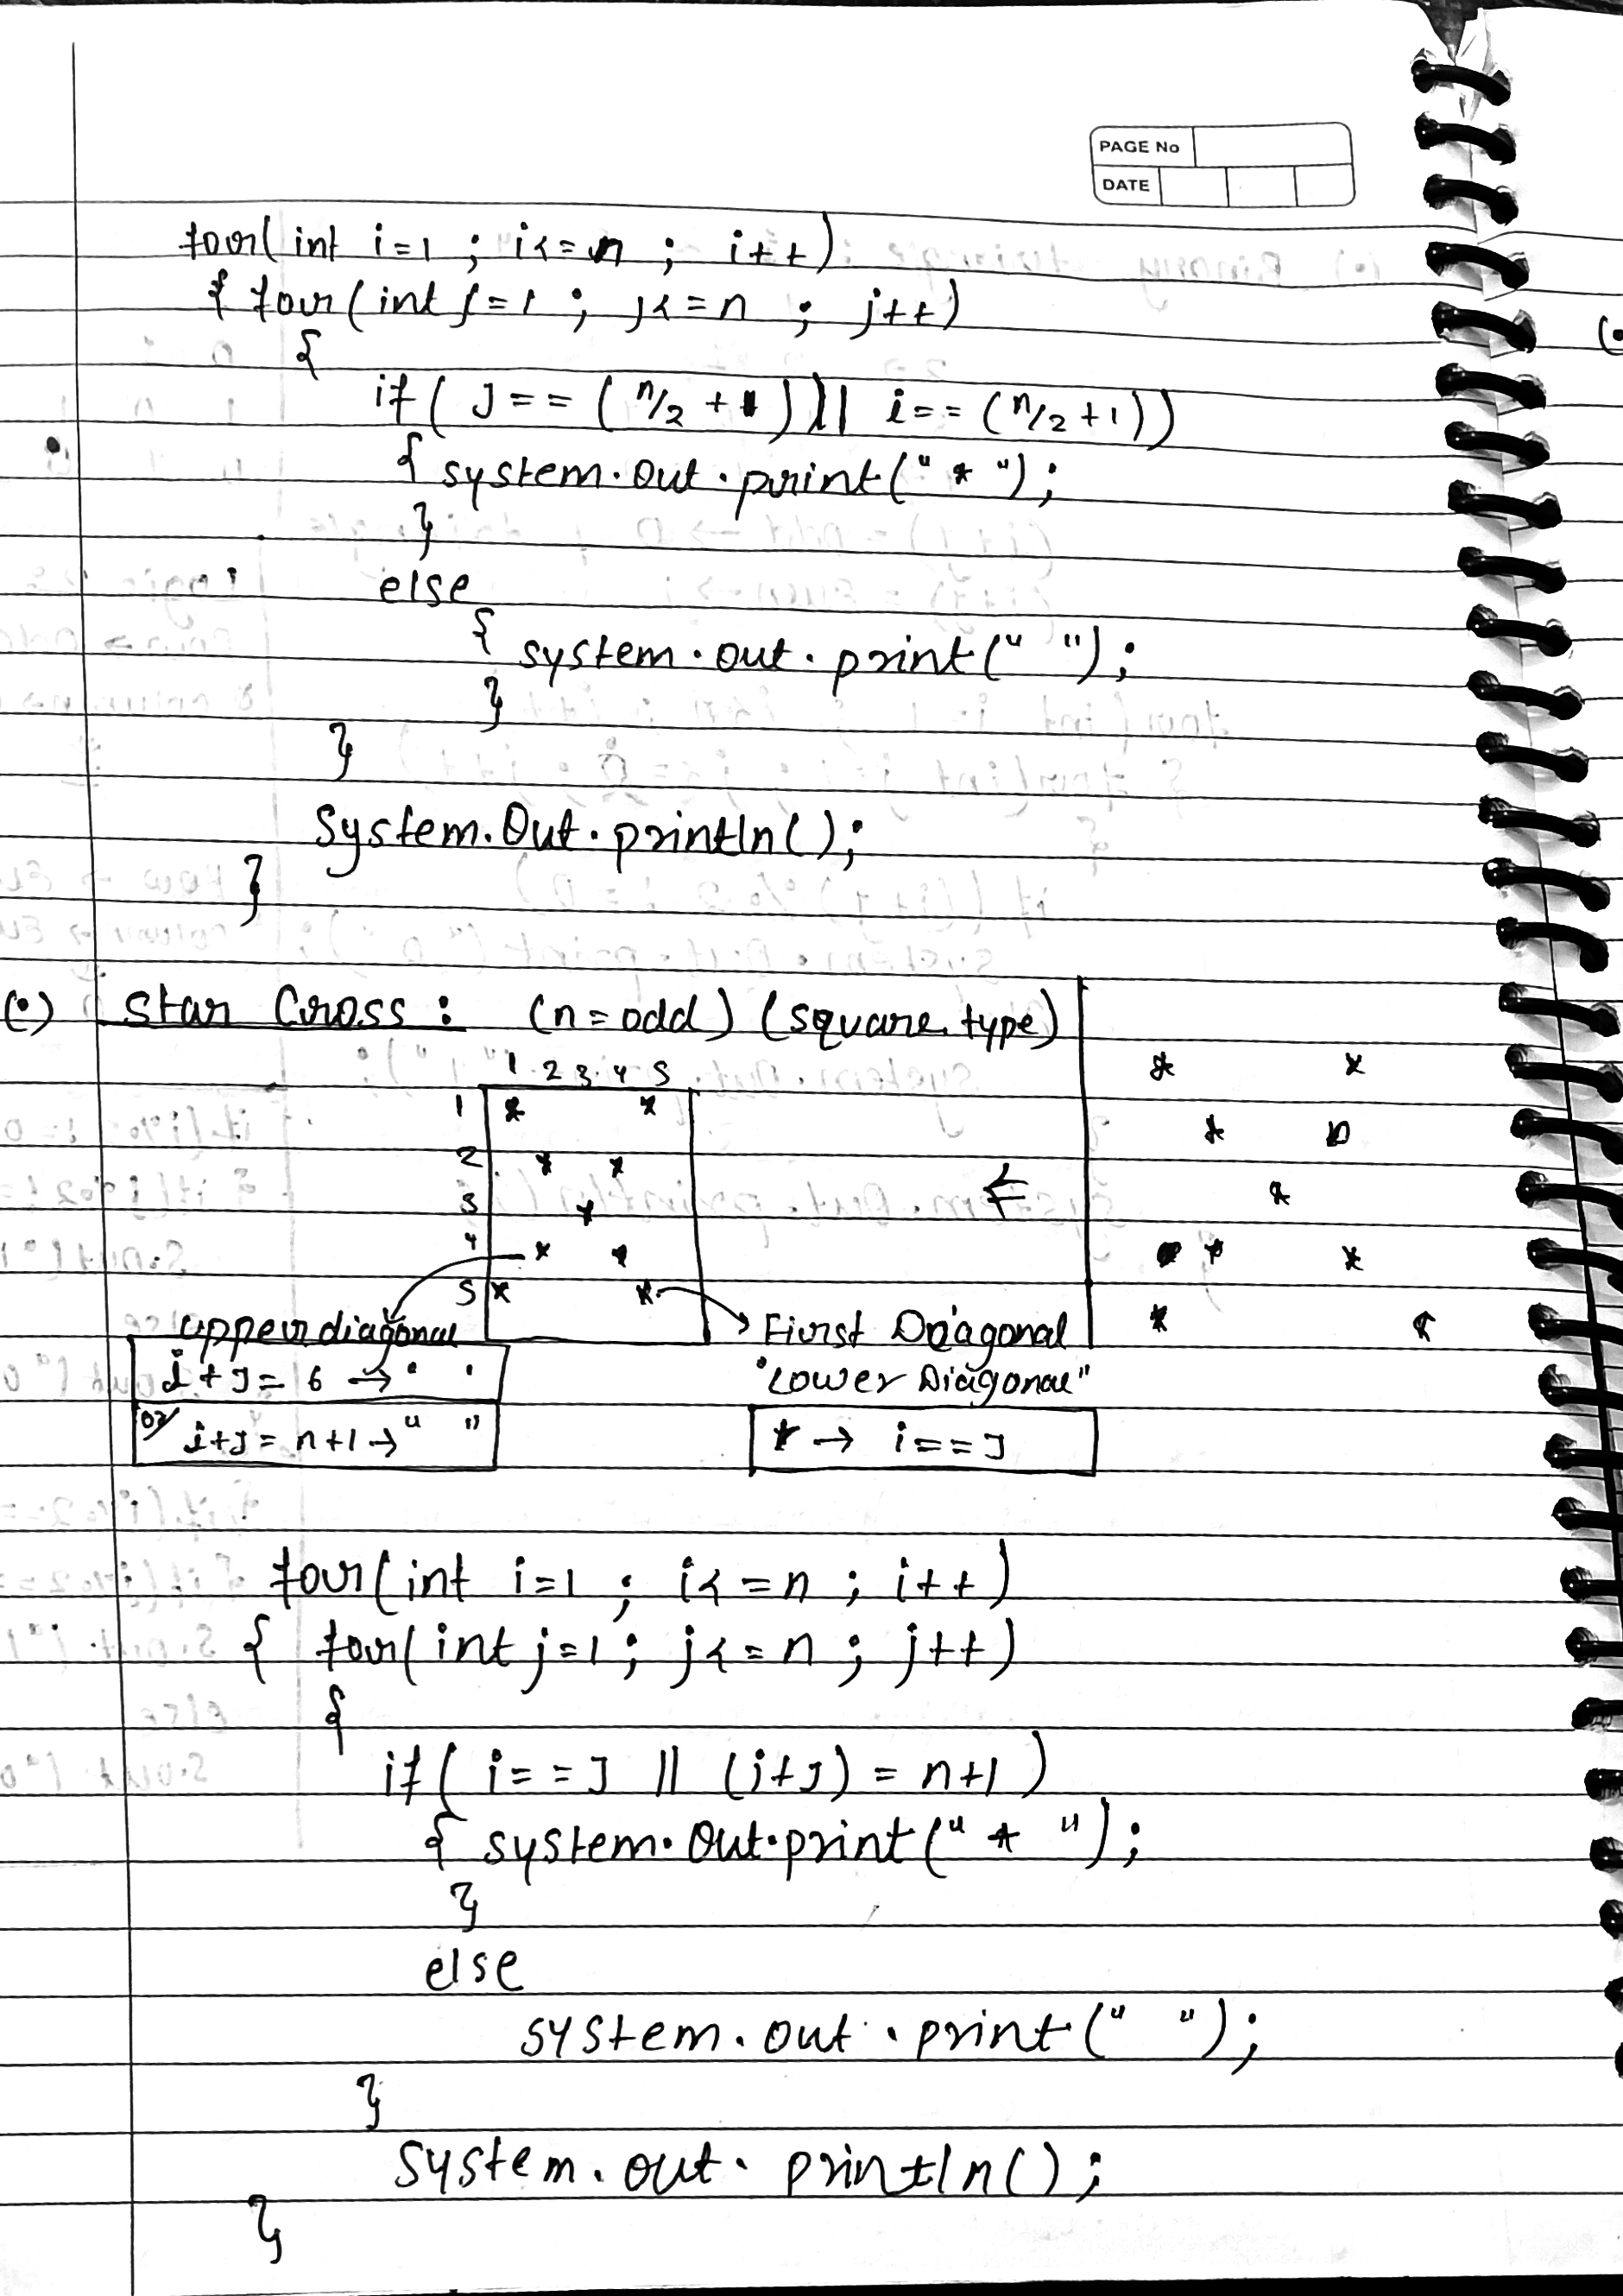 PAGE No
DATE
for(int i=1 ; i<=n ; i++)
{ for(int j=1 ; j<=n ; j++)
{
if( J == (n/2 + 1)) || i == (n/2 +1))
{ system.out.print("*");
}
else
{ system.out.print(" ");
}
}
System.Out.println();
}
(•) Star Cross : (n=odd) (square type)
1 2 3 4 5
1 * *
2 * *
3 *
4 * *
5 * *
* *
*
*
* *
* *
⇐
upper diagonal
i+J= 6 → ' '
or i+J = n+1 → " "
First Diagonal
"Lower Diagonal"
* → i==J
for(int i=1 ; i<=n ; i++)
{ for(int j=1; j<=n ; j++)
{
if( i==J || (i+J) = n+1 )
{ system.Out.print("*");
}
else
system.out.print(" ");
}
System.out.println();
}